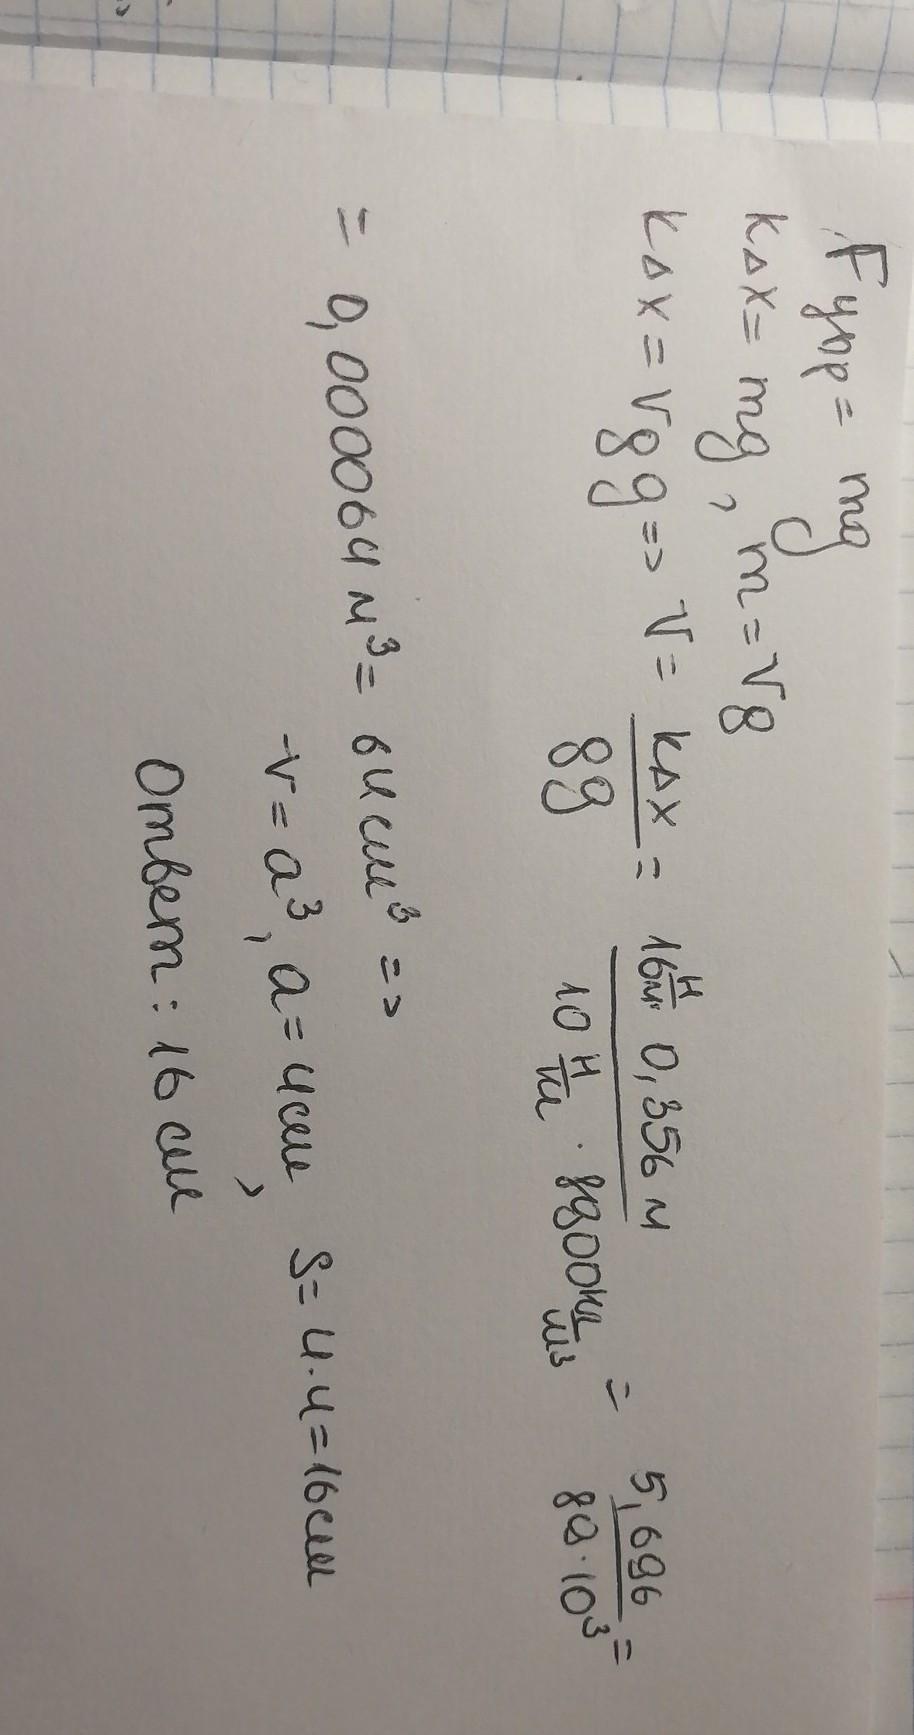 Fупр = mg
kΔx = mg, m = Vρ
kΔx = Vρg => V = kΔx/ρg = 16 Н/м · 0,356 м / 10 Н/кг · 8900 кг/м³ = 5,696/89·10³ =
= 0,000064 м³ = 64 см³ =>
V = a³, a = 4 см, S = 4·4 = 16 см
Ответ: 16 см